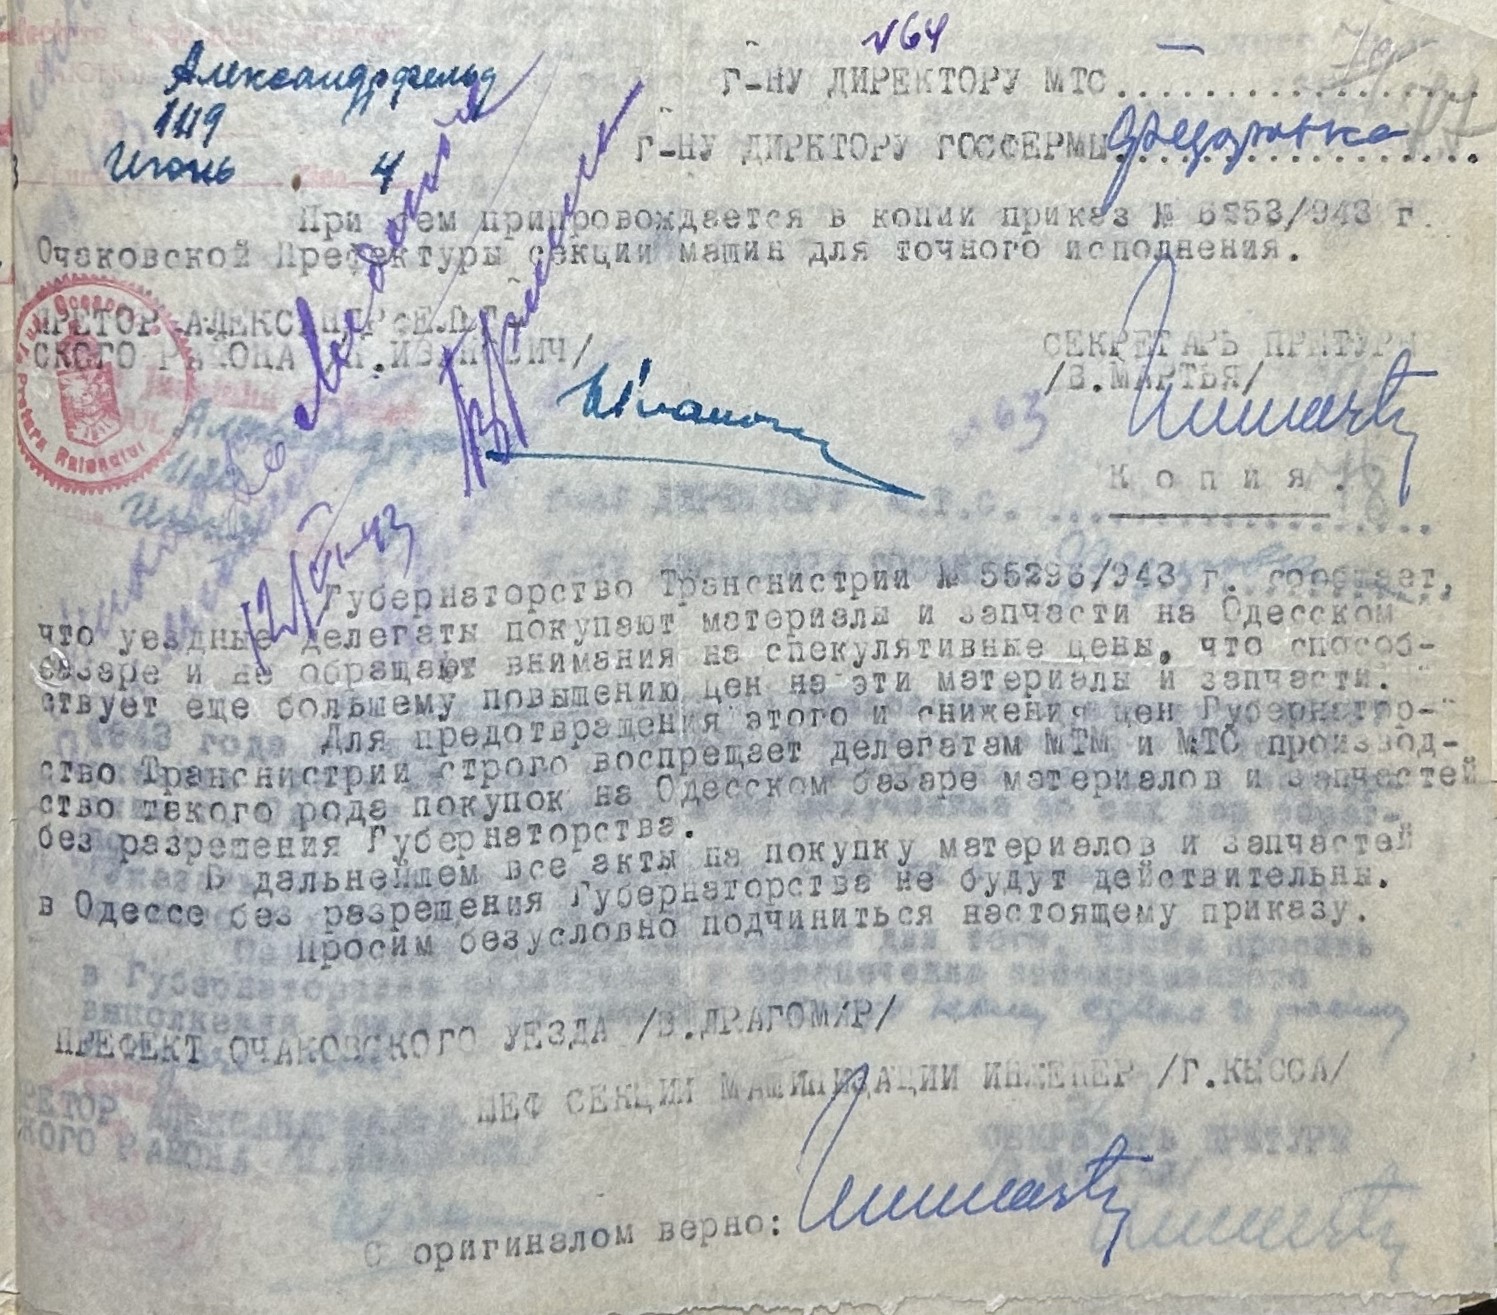 №64
Александрфельд
1119
Июнь 4
Г-НУ ДИРЕКТОРУ МТС..................
Г-НУ ДИРЕКТОРУ ГОСФЕРМЫ Федоровка
При сем припровождается в копии приказ № 6253/943 г.
Очаковской Префектуры секции машин для точного исполнения.
ПРЕТОР АЛЕКСАНДРФЕЛЬД-
СКОГО РАЙОНА /П.ИВАНОВИЧ/
СЕКРЕТАРЬ ПРЕТУРЫ
/В.МАРТЬЯ/
№63
Копия.
12/VI-43
Губернаторство Транснистрии № 55296/943 г. сообщает,
что уездные делегаты покупают материалы и запчасти на Одесском
базаре и не обращают внимания на спекулятивные цены, что способ-
ствует еще большему повышению цен на эти материалы и запчасти.
Для предотвращения этого и снижения цен Губернатор-
ство Транснистрии строго воспрещает делегатам МТМ и МТС производ-
ство такого рода покупок на Одесском базаре материалов и запчастей
без разрешения Губернаторства.
В дальнейшем все акты на покупку материалов и запчастей
в Одессе без разрешения Губернаторства не будут действительны.
Просим безусловно подчиниться настоящему приказу.
ПРЕФЕКТ ОЧАКОВСКОГО УЕЗДА /В.ДРАГОМИР/
ШЕФ СЕКЦИИ МАШИНИЗАЦИИ ИНЖЕНЕР /Г.КЫССА/
С оригиналом верно: